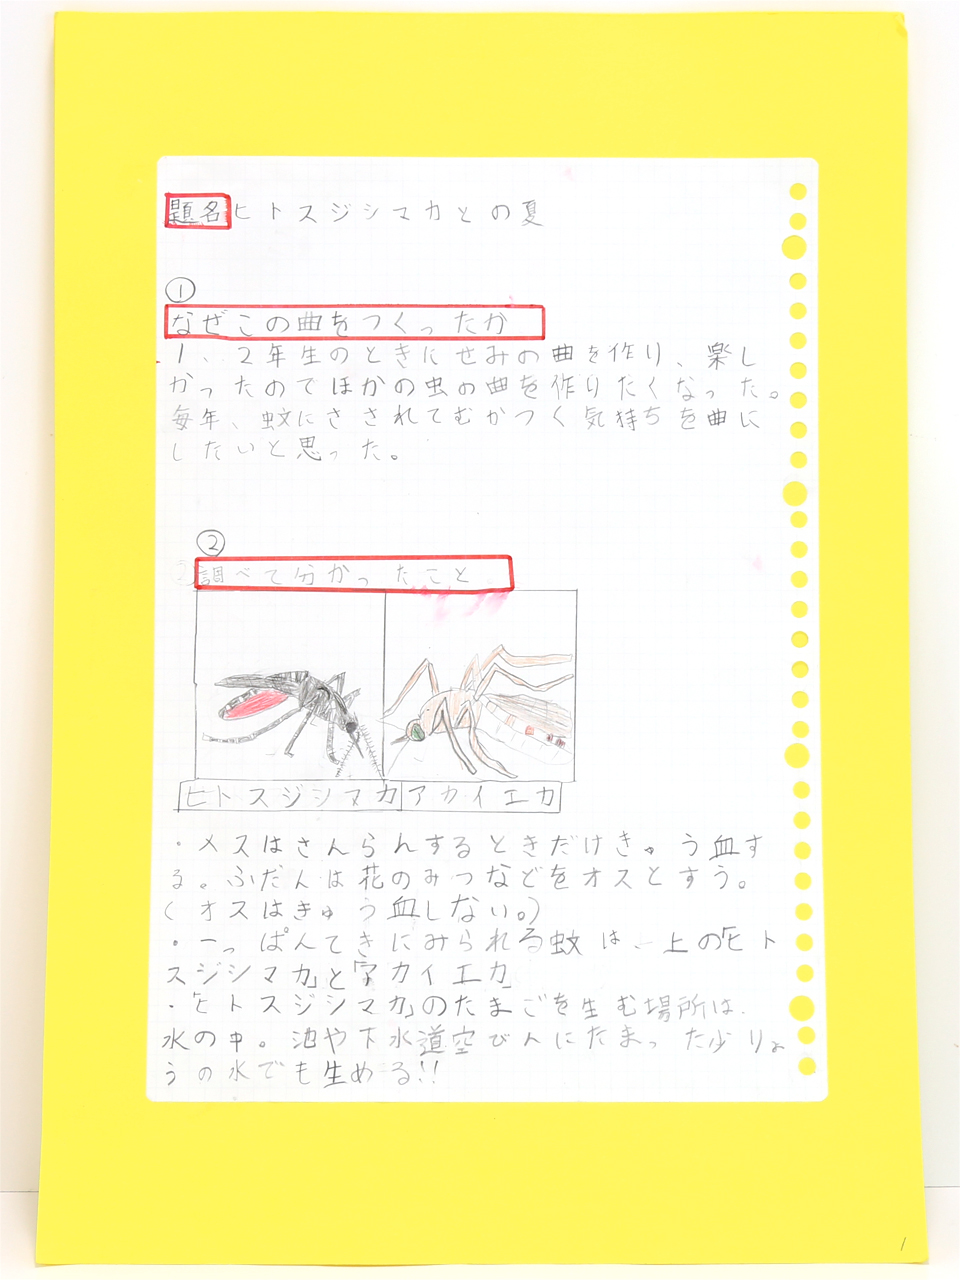 題名ヒトスジシマカとの夏
①
なぜこの曲をつくったか
1、2年生のときにせみの曲を作り、楽し
かったのでほかの虫の曲を作りたくなった。
毎年、蚊にさされてむかつく気持ちを曲に
したいと思った。
②
調べて分かったこと
ヒトスジシマカ アカイエカ
・メスはさんらんするときだけきゅう血す
る。ふだんは花のみつなどをオスとすう。
(オスはきゅう血しない。)
・一っぱんてきにみられる蚊は、上の「ヒト
スジシマカ」と「アカイエカ」
・「ヒトスジシマカ」のたまごを生む場所は、
水の中。池や下水道空びんにたまった少りょ
うの水でも生める!!
1